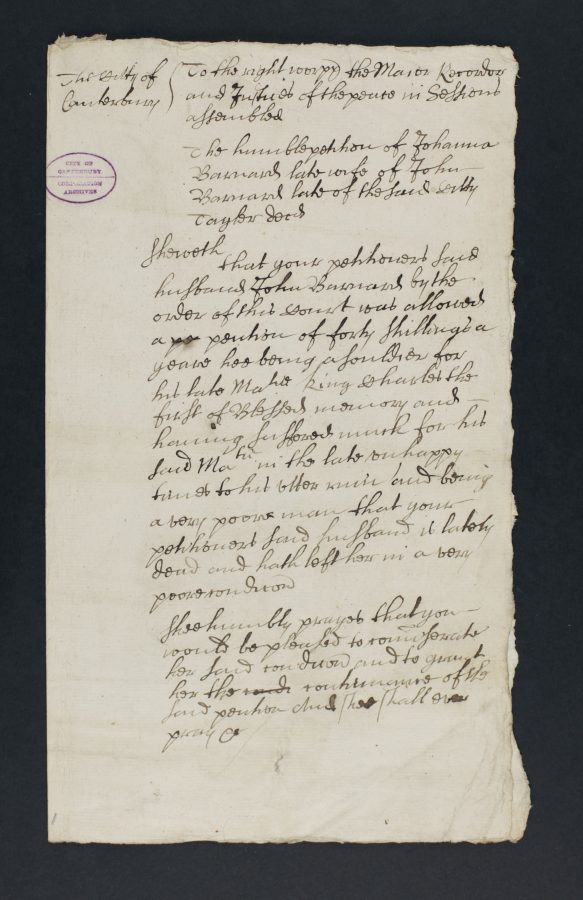 The Citty of
Canterbury
To the right worpp the Maior Recorder
and Justices of the peace in Sessions
assembled
The humble petition of Johanna
Barnard late wife of John
Barnard late of the said Citty
Tayler decd
CITY OF
CANTERBURY
CORPORATION
ARCHIVES
Sheweth
that your petitioners said
husband John Barnard by the
order of this Court was allowed
a pe pention of forty shillings a
yeare hee being a souldier for
his late Matie King Charles the
first of Blessed memory and
having suffered much for his
said Matie in the late unhappy
times to his utter ruin and being
a very poore man that your
petitioners said husband is lately
dead and hath left her in a very
poore condicon
Shee humbly prayes that you
would be pleased to comiserate
her said condicon and to grant
her the continuance of the
said pention And shee shall ever
pray &c